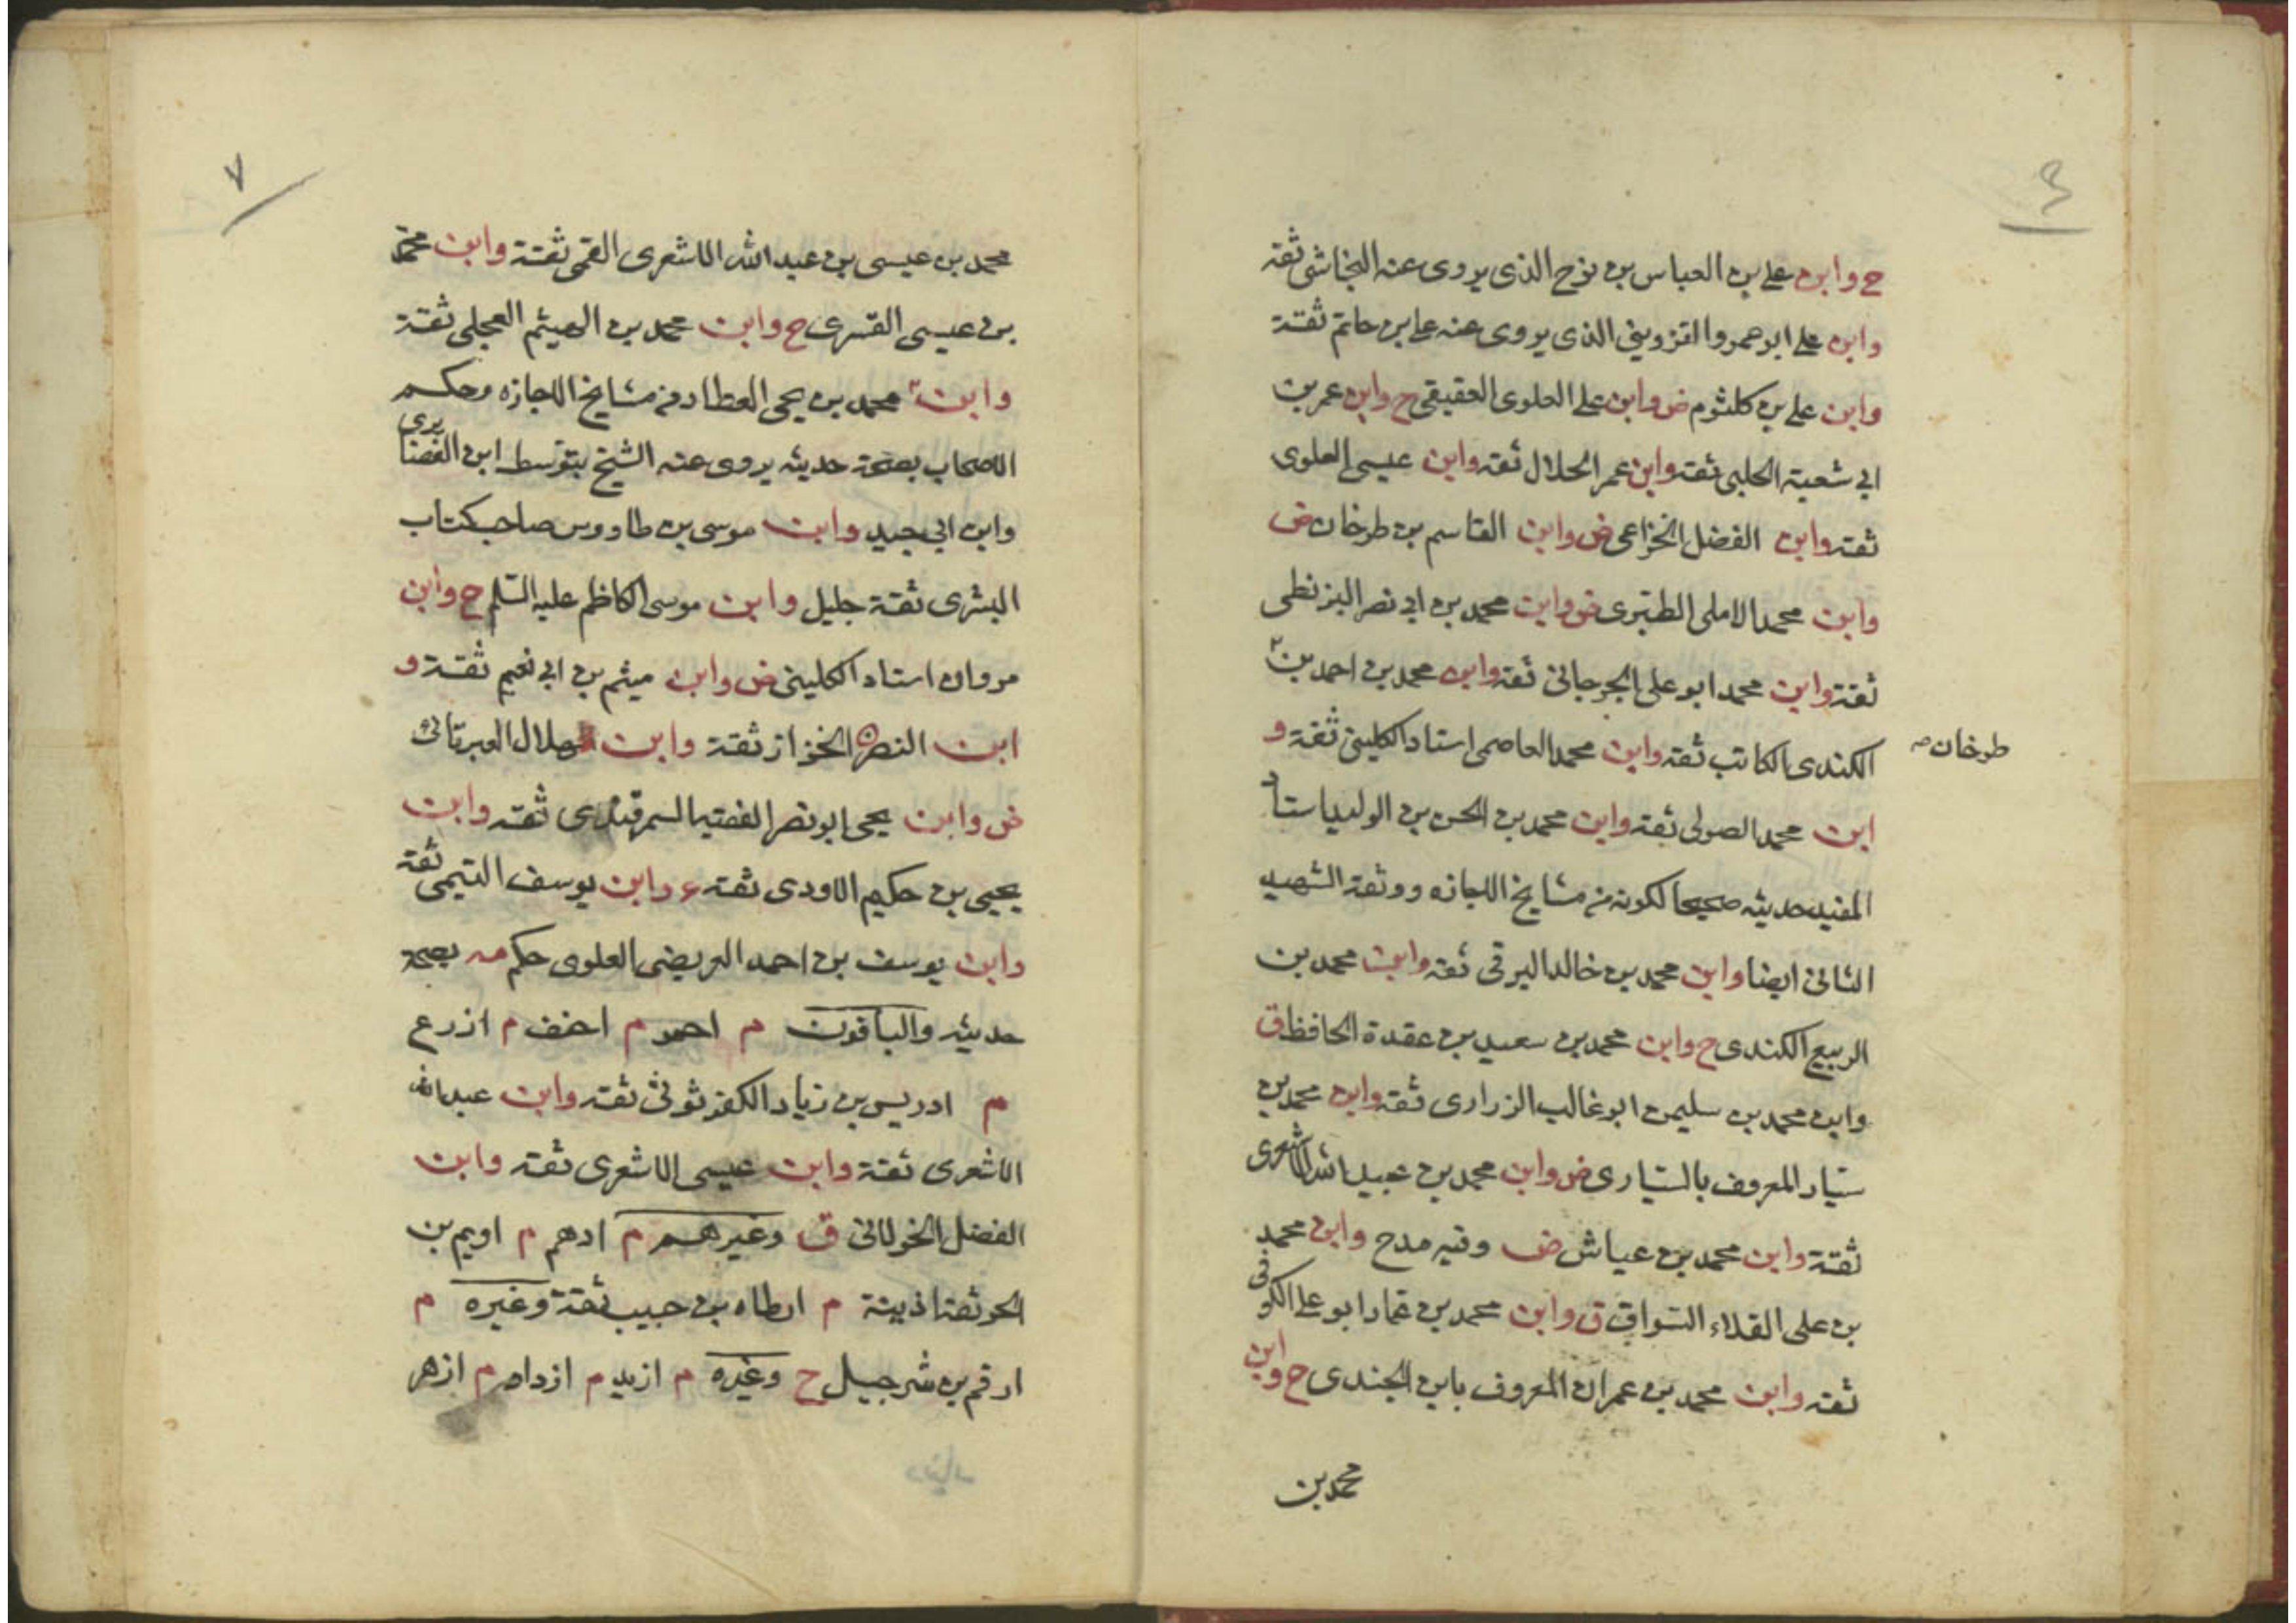 ٤
ح وابن علي بن العباس بن نوح الذى يروى عنه النجاشى ثقة
وابن علي ابو عمرو القزوينى الذى يروى عنه علي بن حاتم ثقة
وابن علي بن كلثوم ض وابن علي العلوى العقيقي ح وابن عمر بن
ابي شعبة الحلبى ثقة وابن عمر الحلال ثقة وابن عيسى العلوى
ثقة وابن الفضل الخزاعى ض وابن القاسم بن طرخان ض
وابن محمد الاملى الطبرى ض وابن محمد بن ابي نصر البزنطى
ثقة وابن محمد ابو على الجرجانى ثقة وابن محمد بن احمد بن
طرخان
الكندى الكاتب ثقة وابن محمد العاصمى استاد الكلينى ثقة و
ابن محمد الصولى ثقة وابن محمد بن الحسن بن الوليد استاد
المفيد حديثه صحيحا لكونه من مشايخ الاجازه ووثقة الشهيد
الثانى ايضا وابن محمد بن خالد البرقى ثقة وابن محمد بن
الربيع الكندى ح وابن محمد بن سعيد بن عقدة الحافظ ق
وابن محمد بن سليمن ابو غالب الزرارى ثقة وابن محمد بن
سيار المعروف بالسيارى ض وابن محمد بن عبيد الله الاشعرى
ثقة وابن محمد بن عياش ض وفيه مدح وابن محمد
بن على القلاء السواق ق وابن محمد بن عمار ابو علي الكوفى
ثقة وابن محمد بن عمران المعروف بابن الجندى ح وابن
محمد بن
٧
محمد بن عيسى بن عبد الله الاشعرى القمى ثقة وابن محمد
بن عيسى القسرى ح وابن محمد بن الهيثم العجلى ثقة
وابن محمد بن يحيى العطار من مشايخ الاجازه وحكم
الاصحاب بصحة حديثه يروى عنه الشيخ بتوسط ابن الغضنايرى
وابن ابى جيد وابن موسى بن طاووس صاحب كتاب
البشرى ثقة جليل وابن موسى الكاظم عليه السلم ح وابن
مروان استاد الكلينى ض وابن ميثم بن ابي نعيم ثقة و
ابن النضر الخزاز ثقة وابن هلال العبرتائى
ض وابن يحيى ابو نصر الفقيه السمرقندى ثقة وابن
يحيى بن حكيم الاودى ثقة وابن يوسف التيمى ثقة
وابن يوسف بن احمد العريضى العلوى حكم مه بصحة
حديثه والباقون م احمر م احنف م ازرع
م ادريس بن زياد الكفرثوثى ثقة وابن عبد الله
الاشعرى ثقة وابن عيسى الاشعرى ثقة وابن
الفضل الخولانى ق وغيرهم م ادهم م اديم بن
الحر ثقة اذينة م ارطاه بن حبيب ثقة وغيره م
ارقم بن شرحبيل ح وغيره م ازيد م ازداد م ازهر